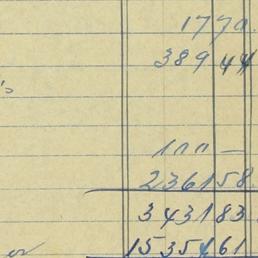 17 70
389 44
's
100 —
2361 58
3431 83
1535 61